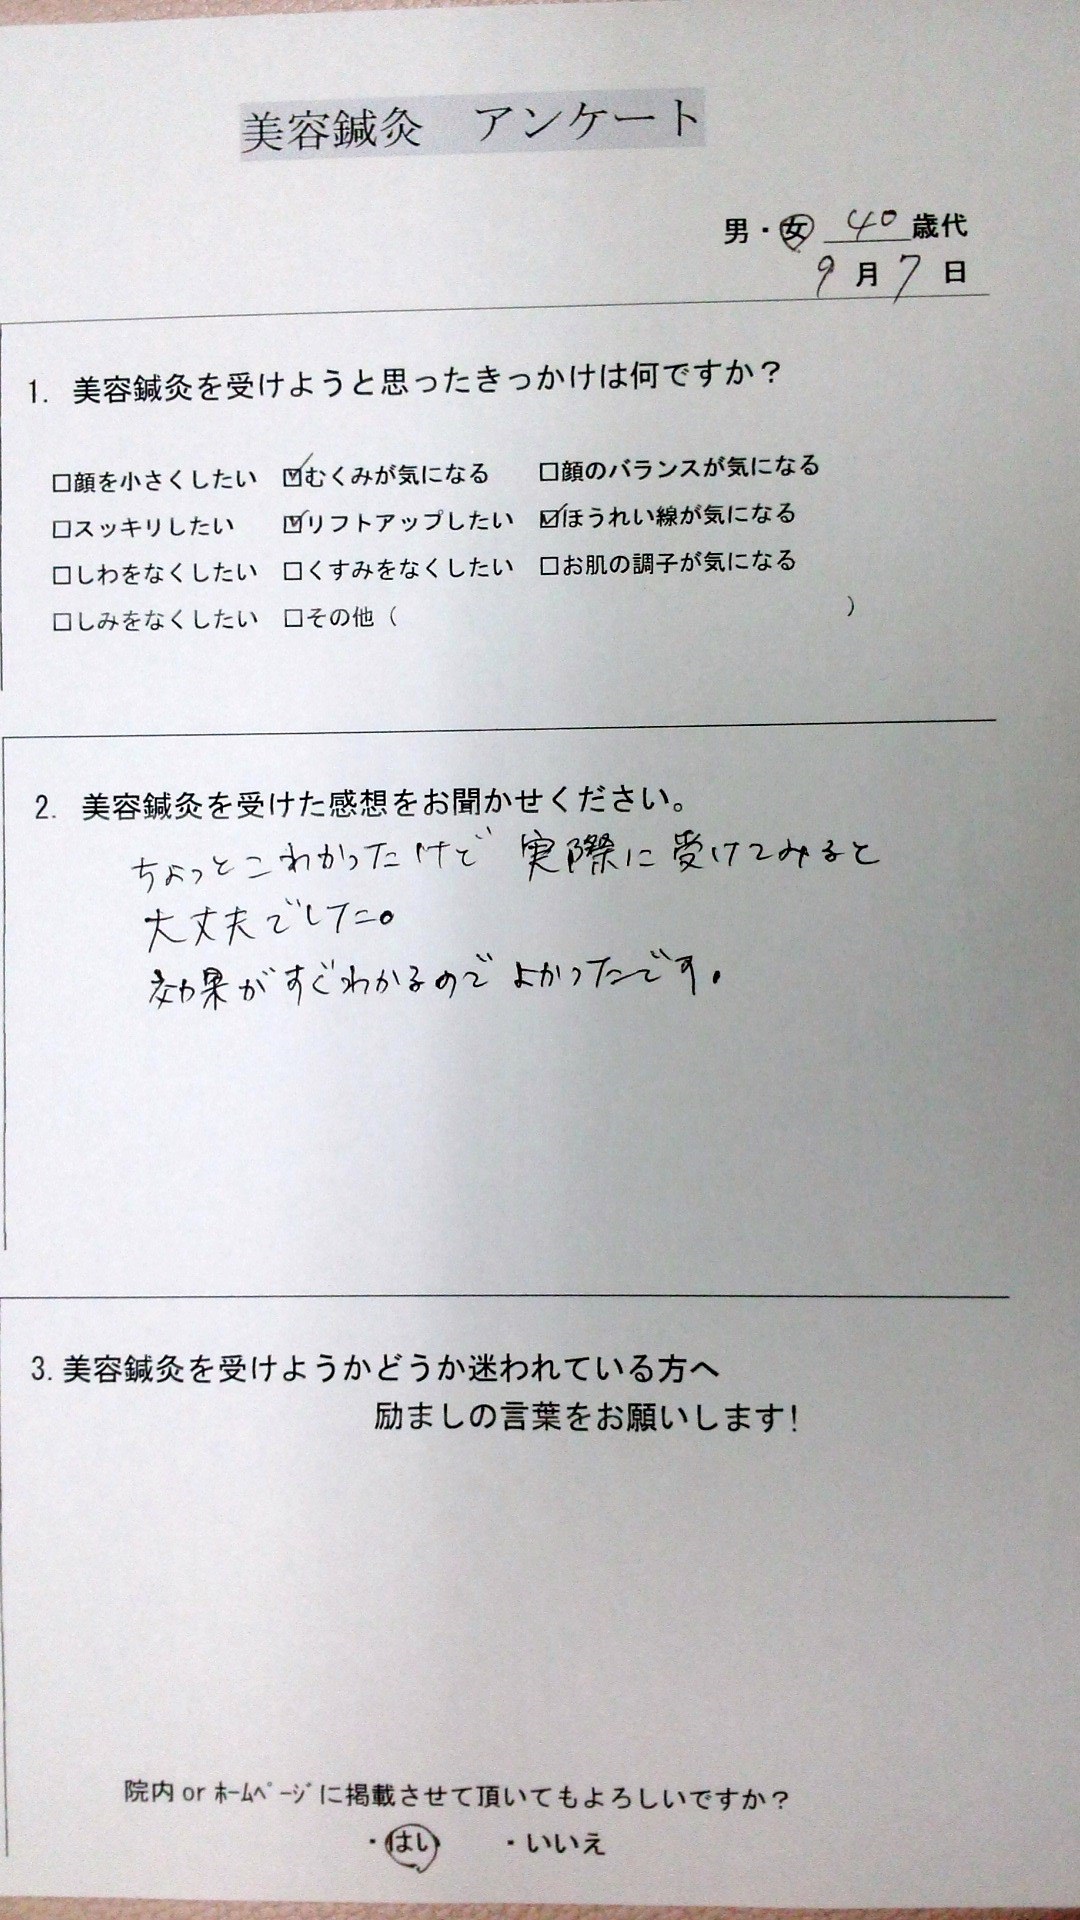 美容鍼灸　アンケート
男・女 40歳代
9月7日
1. 美容鍼灸を受けようと思ったきっかけは何ですか？
□顔を小さくしたい ☑むくみが気になる □顔のバランスが気になる
□スッキリしたい ☑リフトアップしたい ☑ほうれい線が気になる
□しわをなくしたい □くすみをなくしたい □お肌の調子が気になる
□しみをなくしたい □その他（　　　　　）
2. 美容鍼灸を受けた感想をお聞かせください。
ちょっとこわかったけど 実際に受けてみると
大丈夫でした。
効果がすぐわかるのでよかったです。
3.美容鍼灸を受けようかどうか迷われている方へ
励ましの言葉をお願いします！
院内orﾎｰﾑﾍﾟｰｼﾞに掲載させて頂いてもよろしいですか？
・はい ・いいえ